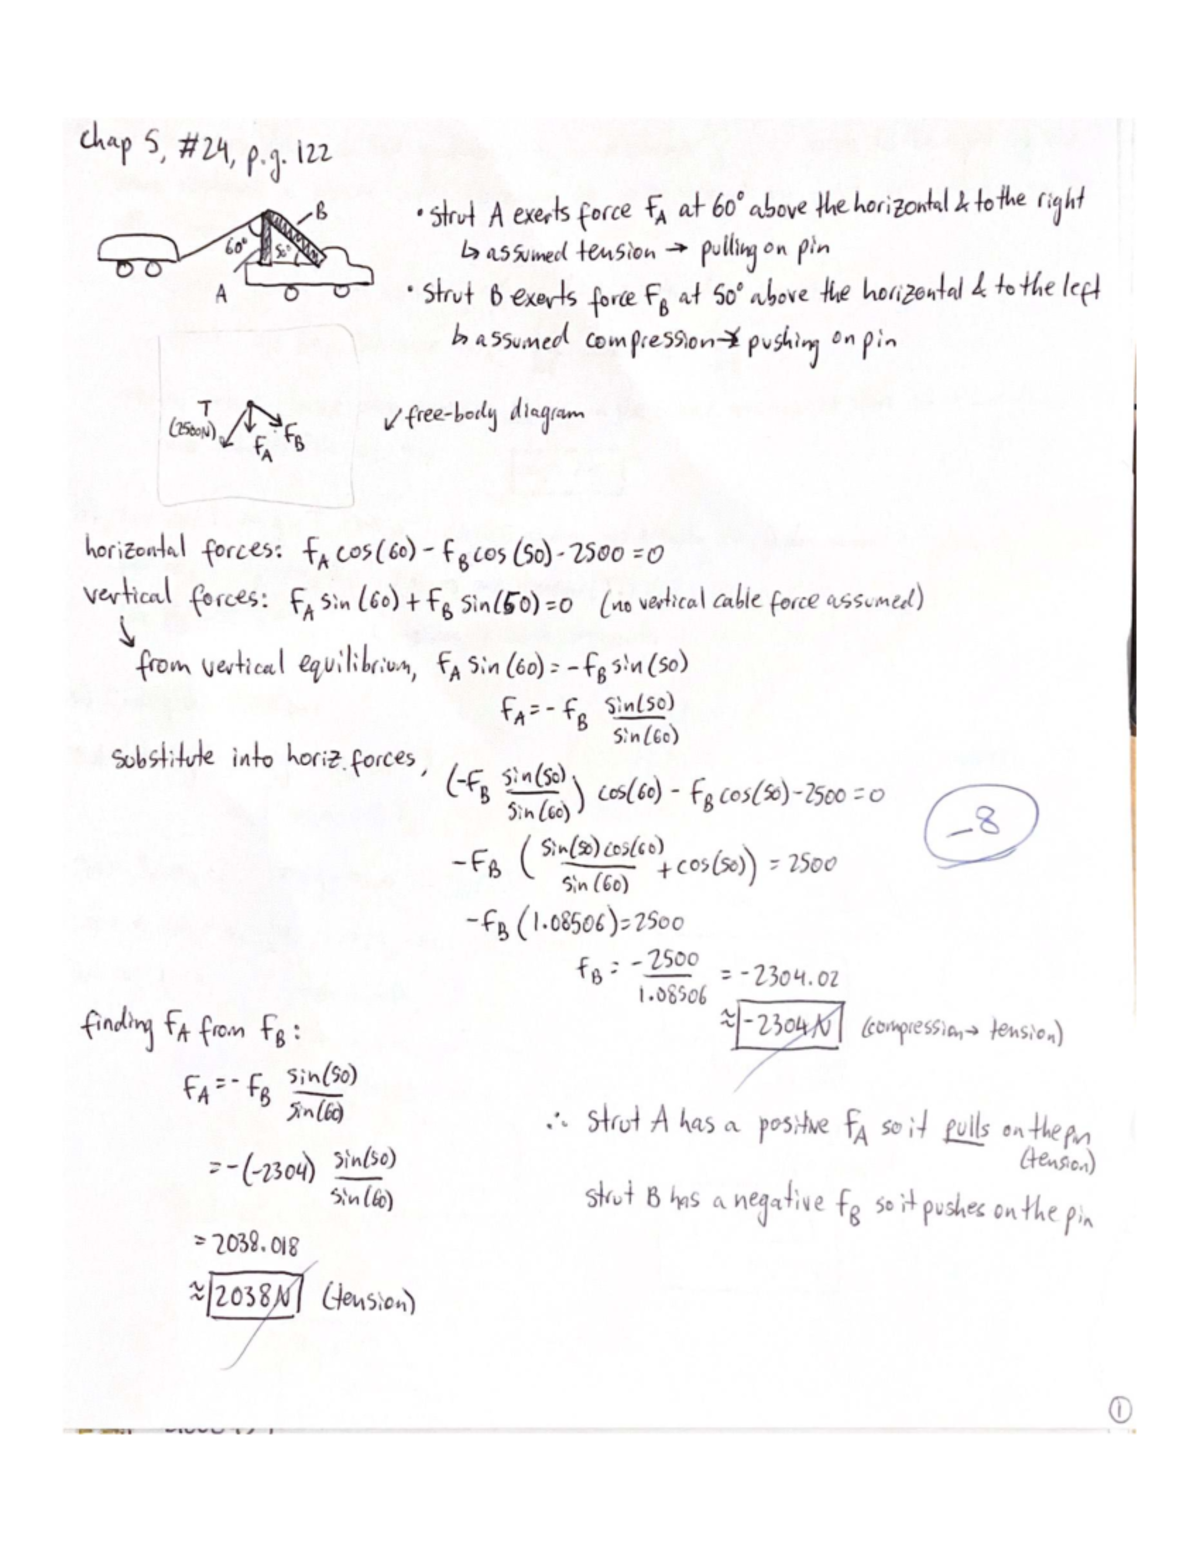 Chap 5, #24, p.g. 122
B
60°
50°
A
• Strut A exerts force FA at 60° above the horizontal & to the right
↳ assumed tension → pulling on pin
• Strut B exerts force FB at 50° above the horizontal & to the left
↳ assumed compression → pushing on pin
T
(2500N)
FA
FB
↙ free-body diagram
horizontal forces: FA cos(60) - FB cos(50) - 2500 = 0
vertical forces: FA sin(60) + FB sin(50) = 0 (no vertical cable force assumed)
from vertical equilibrium, FA sin(60) = -FB sin(50)
FA = - FB sin(50)/sin(60)
substitute into horiz. forces,
(-FB sin(50)/sin(60)) cos(60) - FB cos(50) - 2500 = 0
-8
-FB (sin(50)cos(60)/sin(60) + cos(50)) = 2500
-FB (1.08506) = 2500
FB = -2500/1.08506 = -2304.02
≈ -2304N (compression → tension)
finding FA from FB:
FA = - FB sin(50)/sin(60)
= -(-2304) sin(50)/sin(60)
= 2038.018
≈ 2038N (tension)
∴ Strut A has a positive FA so it pulls on the pin
(tension)
Strut B has a negative FB so it pushes on the pin
1